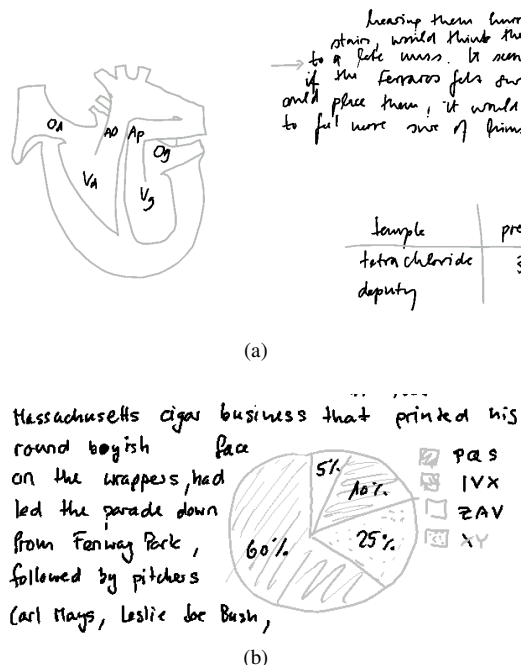 hearing them
stairs, would think
to a late mass. It
if the Ferraros felt
could place them, it would
to feel more sure of
Od
AO
Ap
Og
Vd
Vg
temple
tetrachloride
deputy
(a)
Massachusetts cigar business that printed his
round boyish face
on the wrappers, had
led the parade down
from Fenway Park,
followed by pitchers
Carl Mays, Leslie Joe Bush,
5%
10%
25%
60%
PQS
IVX
ZAV
XY
(b)